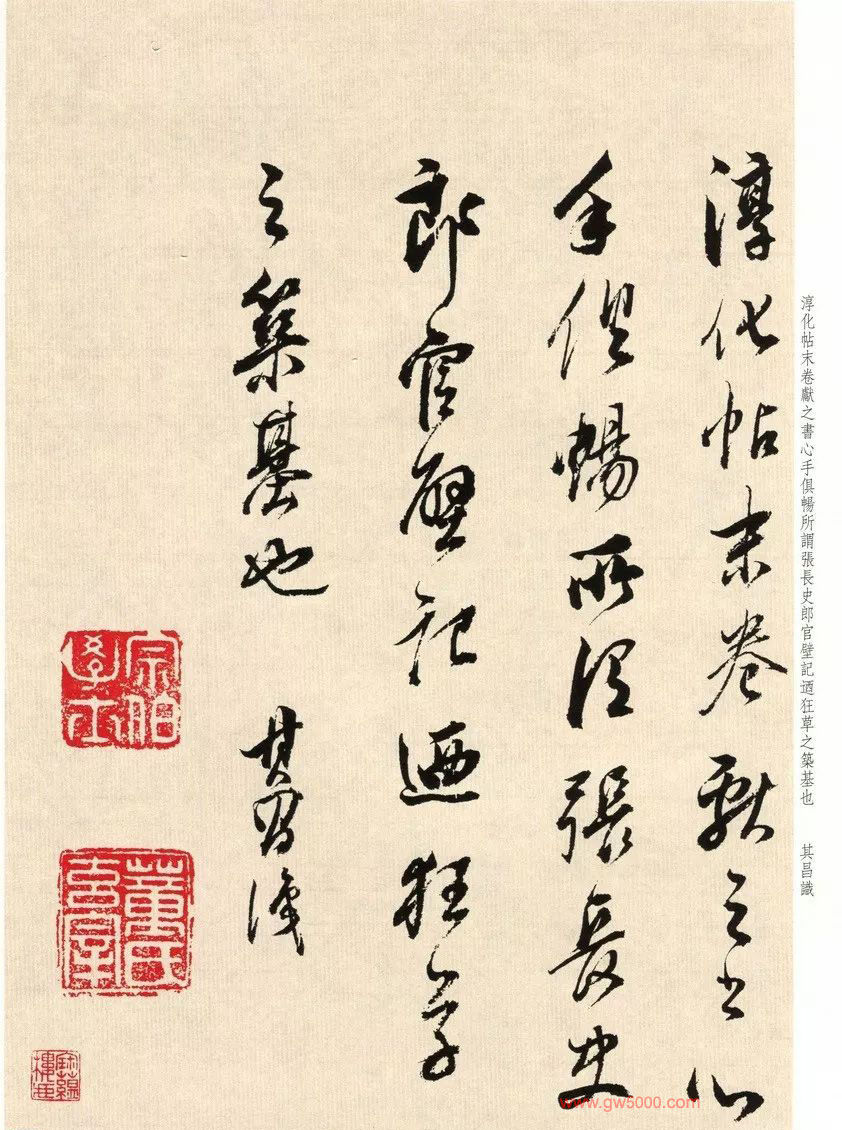 淳化帖末卷獻之書心手俱暢所謂張長史郎官壁記迺狂草之築基也 其昌識
淳化帖末卷獻之書心
手俱暢所謂張長史
郎官壁記迺狂草
之築基也 其昌識
宗伯學士
董氏
www.gw5000.com